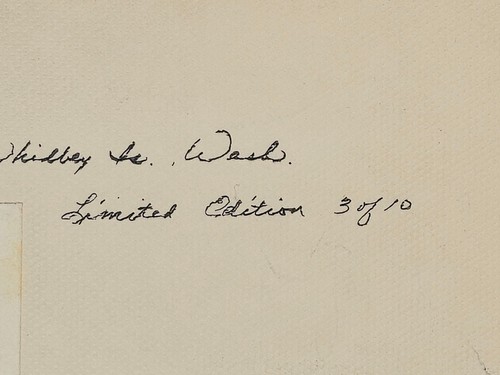 Whidbey Is. Wash.
Limited Edition 3 of 10